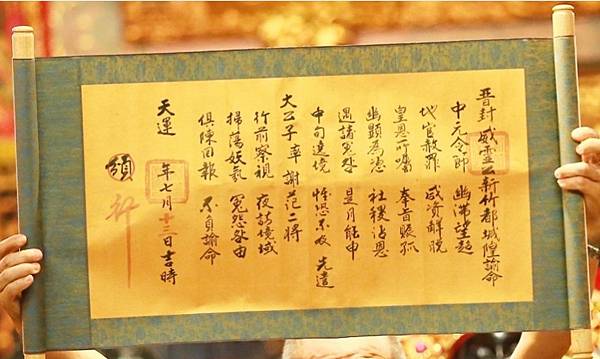 晋封 威靈公新竹都城隍諭命
中元令節 幽滯望超
地官赦罪 咸資解脫
皇恩所囑 奉旨賑孤
幽顯為憑 社稷沾恩
遇諸冤咎 是月能申
中旬遶境 惟恐不收 先遣
大公子 率 謝范二將
行前察視 夜訪境域
掃蕩妖氛 冤怨咎由
俱陳回報 不負諭命
天運 年七月十三日吉時
頒行